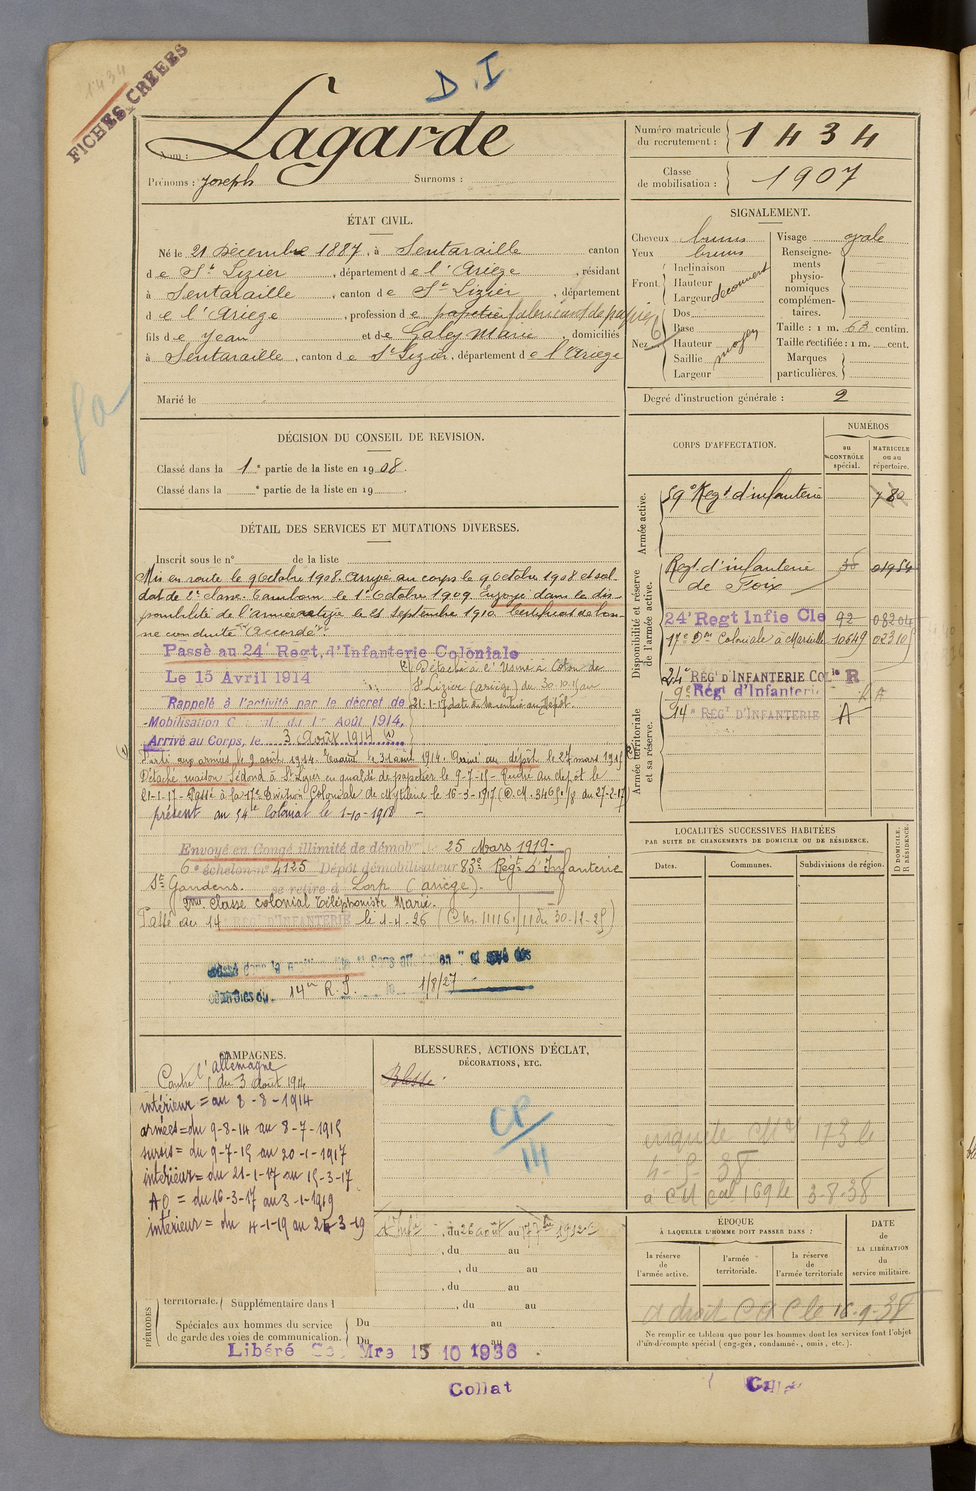 1434
FICHES CREEES
D.I
Nom : Lagarde
Prénoms : Joseph Surnoms :
Numéro matricule du recrutement : 1434
Classe de mobilisation : 1907
ÉTAT CIVIL.
Né le 21 Décembre 1887, à Sentaraille canton
de St Lizier, département de l'Ariège, résidant
à Sentaraille, canton de St Lizier, département
de l'Ariège, profession de papetier fabricant de papier
fils de Jean et de Galey Marie, domiciliés
à Sentaraille, canton de St Lizier, département de l'Ariège
Marié le
SIGNALEMENT.
Cheveux bruns
Yeux bruns
Front. Inclinaison
Hauteur
Largeur découvert
Nez. Dos
Base
Hauteur moyen
Saillie
Largeur
Visage ovale
Renseignements physionomiques complémentaires.
Taille : 1 m. 63 centim.
Taille rectifiée : 1 m. cent.
Marques particulières.
Degré d'instruction générale : 2
DÉCISION DU CONSEIL DE REVISION.
Classé dans la 1e partie de la liste en 1908.
Classé dans la e partie de la liste en 19 .
DÉTAIL DES SERVICES ET MUTATIONS DIVERSES.
Inscrit sous le n° de la liste
Mis en route le 9 Octobre 1908. Arrivé au corps le 9 Octobre 1908 et sol-
dat de 2e classe. Tambour le 1er Octobre 1909. Envoyé dans la dis-
ponibilité de l'armée active le 25 Septembre 1910. Certificat de bon-
ne conduite "Accordé".
Passé au 24e Regt, d'Infanterie Coloniale
Le 15 Avril 1914
Détaché à l'Usine à Coton de
St Lizier (Ariège) du 30-10-15 au
21-1-17 date de sa rentrée au Dépôt.
Rappelé à l'activité par le décret de
Mobilisation du 1er Août 1914,
Arrivé au Corps, le 3 Août 1914 (1)
Parti aux armées le 9 août 1914. Evacué le 31 août 1914. Arrivé au dépôt le 27 mars 1915
Détaché maison Sédond à St Lizier en qualité de papetier le 9-7-15. Rentré au dépôt le
21-1-17. Passé à la 17e Division Coloniale de Mytilène le 16-3-1917 (D.M. 3465 1/8 du 27-2-17)
présent au 54e Colonial le 1-10-1918
Envoyé en Congé illimité de démob le 25 Mars 1919
6e échelon n° 4125 Dépôt démobilisateur 83e Régt d'Infanterie
St Gaudens. se retire à Lorp (Ariège).
2me Classe colonial Téléphoniste Marié.
Passé au 14e RÉGT D'INFANTERIE le 1-4-26 (C.M. 11116 1/11 du 30-12-25)
14e R.I. le 1/8/27
CORPS D'AFFECTATION.
NUMÉROS
au CONTRÔLE spécial.
MATRICULE ou au répertoire.
Armée active.
59e Regt d'infanterie 780
Disponibilité et réserve de l'armée active.
Regt d'infanterie
de Foix
24e Regt Infie Cle 92 08204
17e Don Coloniale à Marseille 10649
24e RÉGT D'INFANTERIE COLle R
9e Régt d'Infanterie
14e RÉGT D'INFANTERIE A
Armée territoriale et sa réserve.
LOCALITÉS SUCCESSIVES HABITÉES
PAR SUITE DE CHANGEMENTS DE DOMICILE OU DE RÉSIDENCE.
Dates. Communes. Subdivisions de région.
D DOMICILE. R RÉSIDENCE.
CAMPAGNES.
Contre l'Allemagne
du 3 août 1914
intérieur = au 8-8-1914
armées = du 9-8-14 au 8-7-1915
sursis = du 9-7-15 au 20-1-1917
intérieur = du 21-1-17 au 15-3-17
AO = du 16-3-17 au 3-1-1919
intérieur = du 4-1-19 au 24-3-19
BLESSURES, ACTIONS D'ÉCLAT,
DÉCORATIONS, ETC.
Blessé
CP/14
, du 26 août au
, du au
, du au
, du au
territoriale. Supplémentaire dans l , du au
PÉRIODES
Spéciales aux hommes du service
de garde des voies de communication.
Du au
Du au
Libéré Mre 15 10 1936
Collat
enquête 173 le
4-5-38
169 le 3-8-38
ÉPOQUE
À LAQUELLE L'HOMME DOIT PASSER DANS :
la réserve de l'armée active.
l'armée territoriale.
la réserve de l'armée territoriale
DATE de LA LIBÉRATION du service militaire.
a droit CAC le 16-9-38
Ne remplir ce tableau que pour les hommes dont les services font l'objet
d'un décompte spécial (engagés, condamnés, omis, etc.).